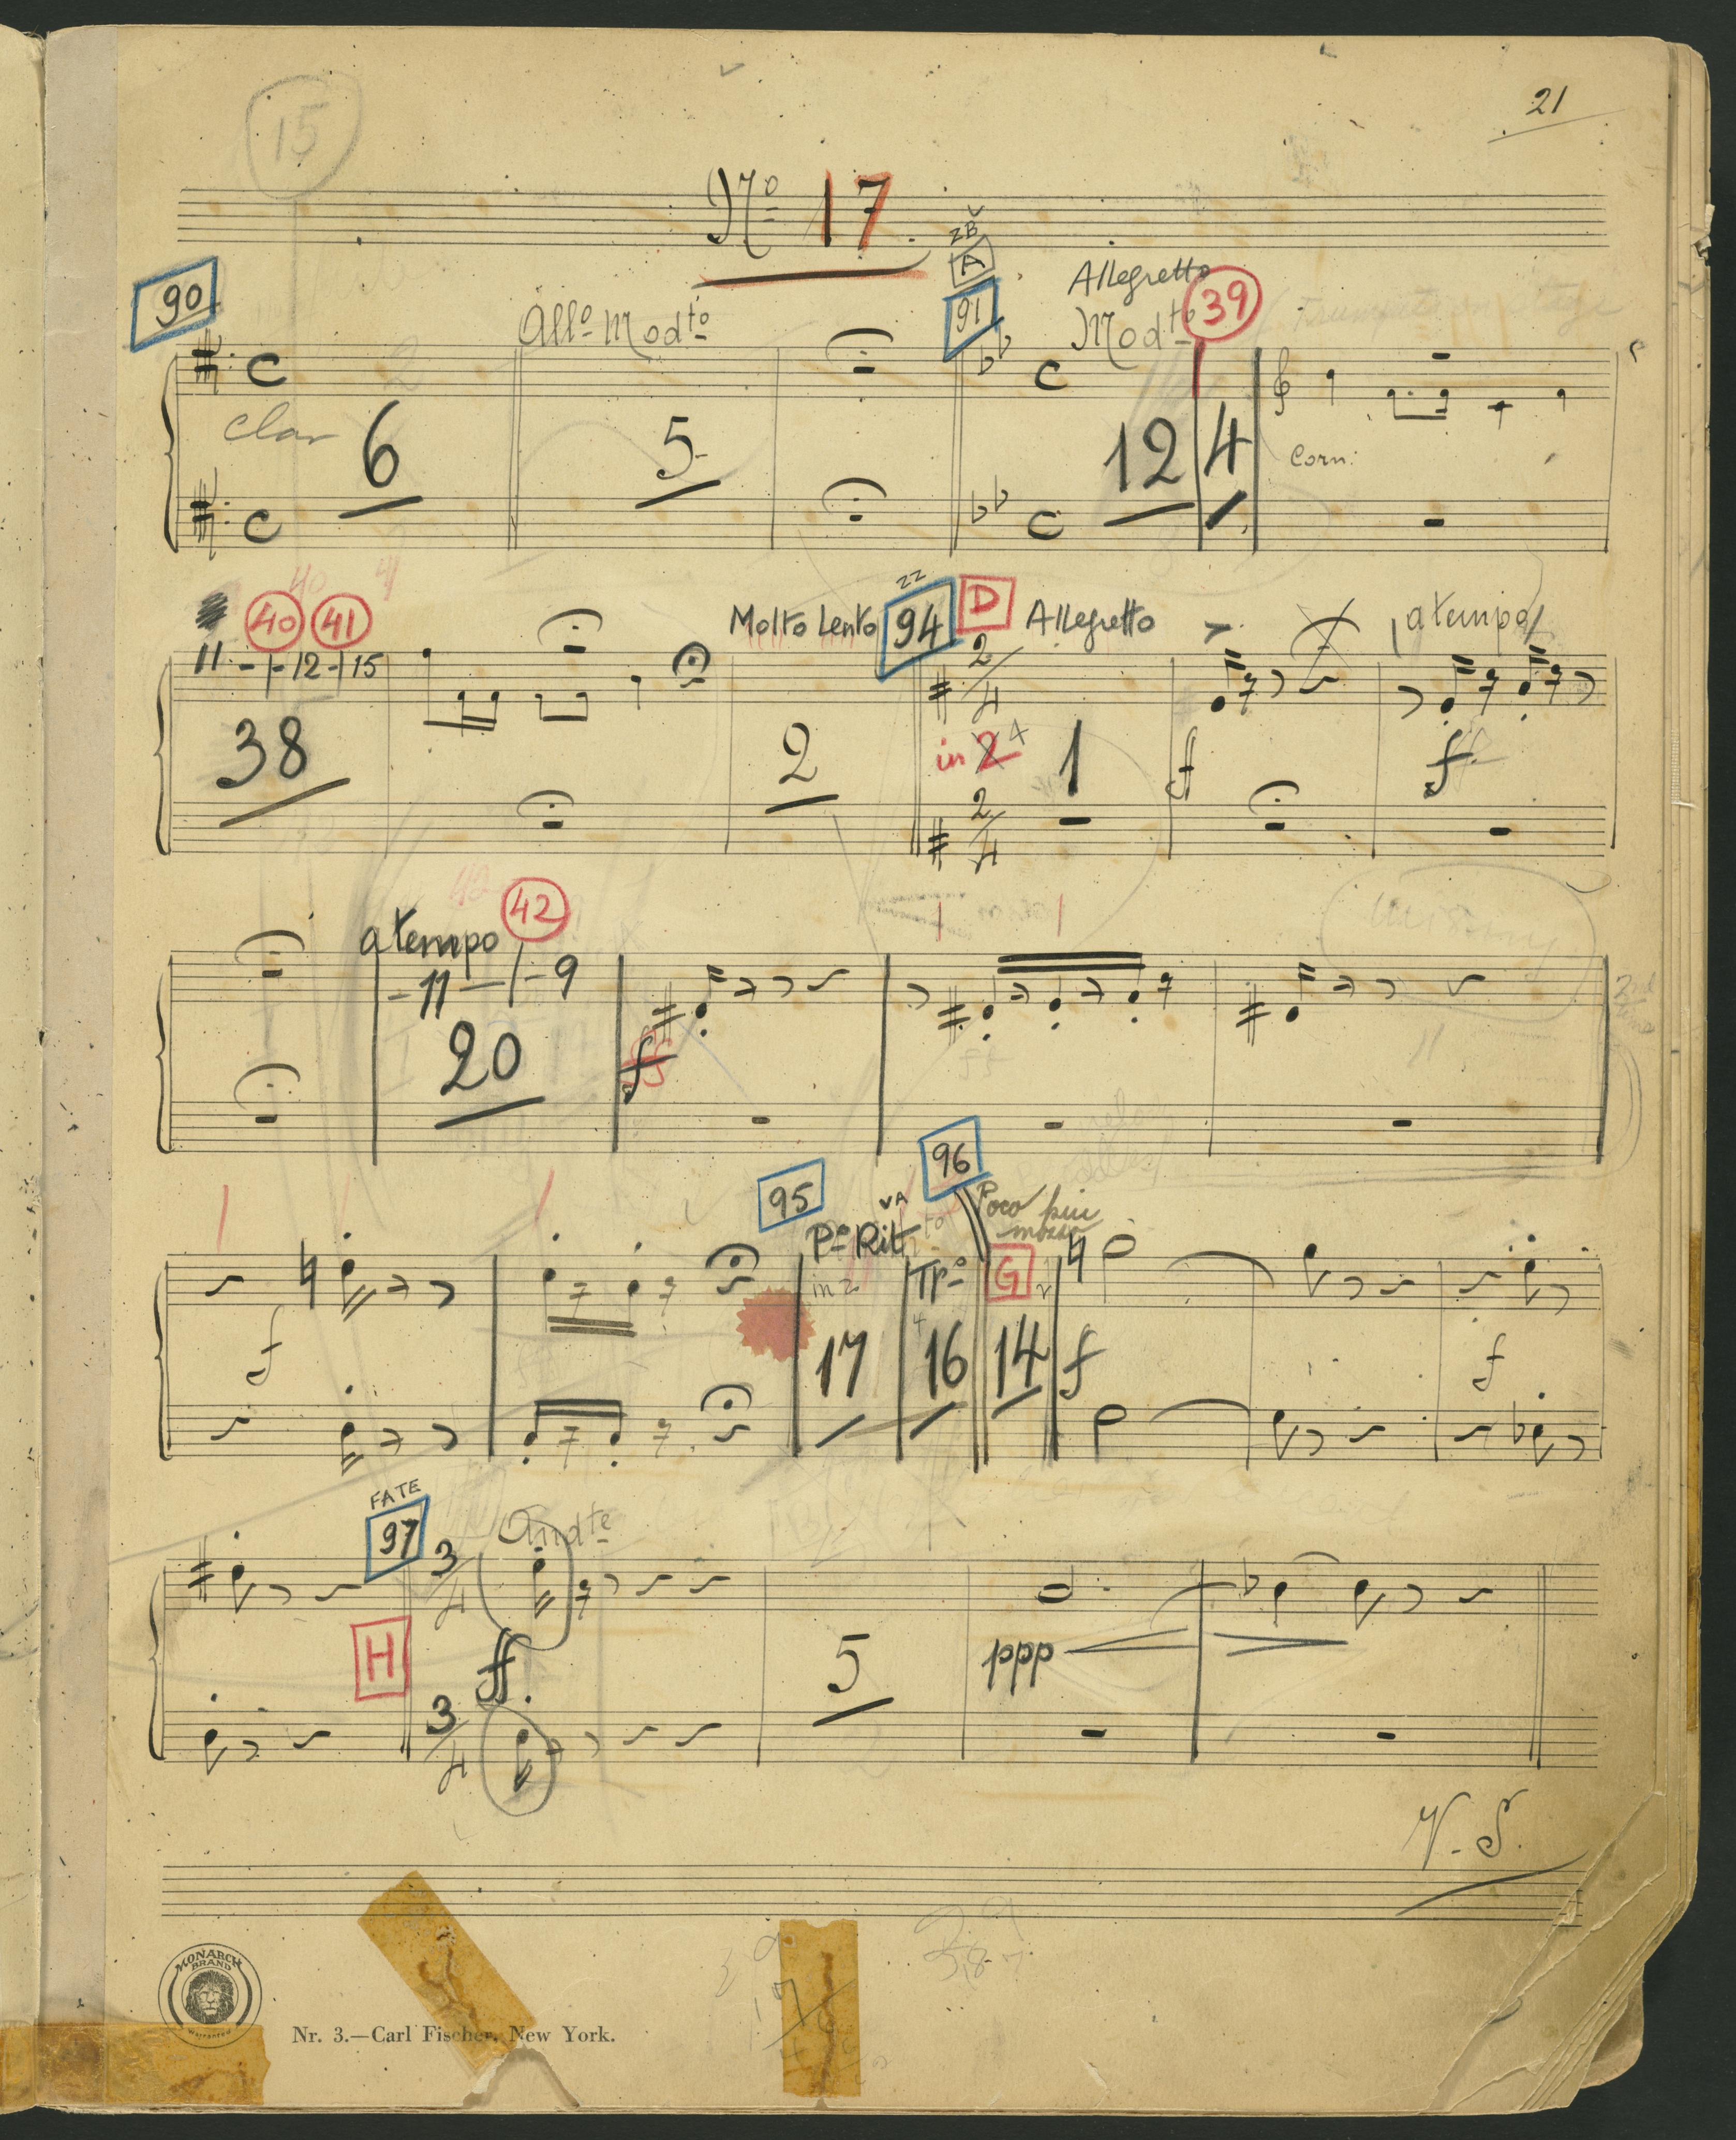 21
15
No 17.
ZB
90
Allo Modto
A
91
Allegretto
Modto
39
clar
6
5
12
4
Corn:
40 41
11 - - 12 - 15
Molto Lento
ZZ
94
D
Allegretto
a tempo
2/4
38
2
in 2 4
1
f
f
2/4
a tempo
42
- 11 - - 9
20
f
95
VA
96
Po Rit
Poco piu
mosso
in 2
Tpo
G
f
17
16
14
f
f
FATE
97
Andte
3/4
H
ff.
5
ppp
3/4
V. S.
MONARCH
BRAND
WARRANTED
Nr. 3.—Carl Fischer, New York.